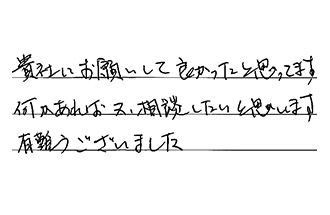 貴社にお願いして良かったと思ってます
何かあれば又、相談したいと思います
有難うございました